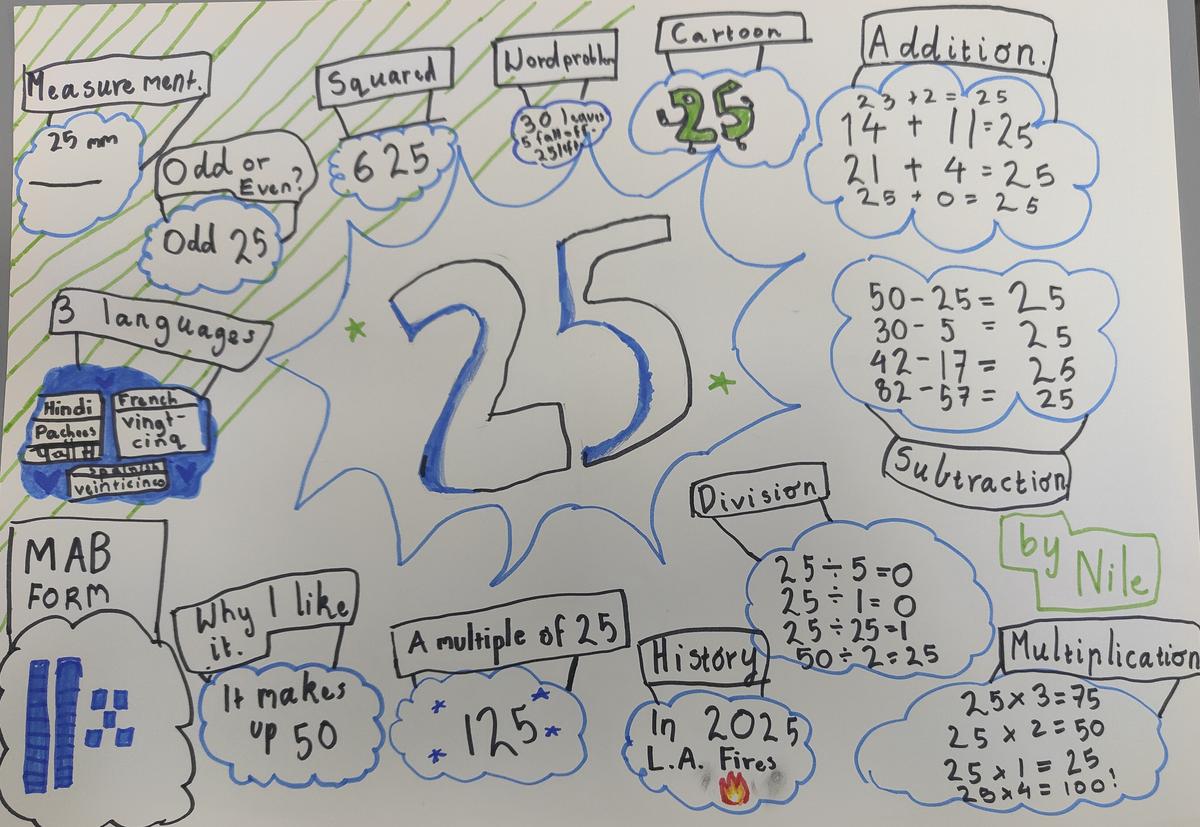 Measurement.
25 mm
Odd or
Even?
Odd 25
Squared
625
Wordproblem
30 leaves
5 fall off.
25 left
Cartoon
25
Addition.
23 + 2 = 25
14 + 11 = 25
21 + 4 = 25
25 + 0 = 25
25
3 languages
Hindi
Pachees
French
vingt-
cinq
Spanish
veinticinco
50 - 25 = 25
30 - 5 = 25
42 - 17 = 25
82 - 57 = 25
Subtraction
Division
25 ÷ 5 = 0
25 ÷ 1 = 0
25 ÷ 25 = 1
50 ÷ 2 = 25
by
Nile
MAB
FORM
Why I like
it.
It makes
up 50
A multiple of 25
125
History
In 2025
L.A. Fires
Multiplication
25 x 3 = 75
25 x 2 = 50
25 x 1 = 25
25 x 4 = 100!